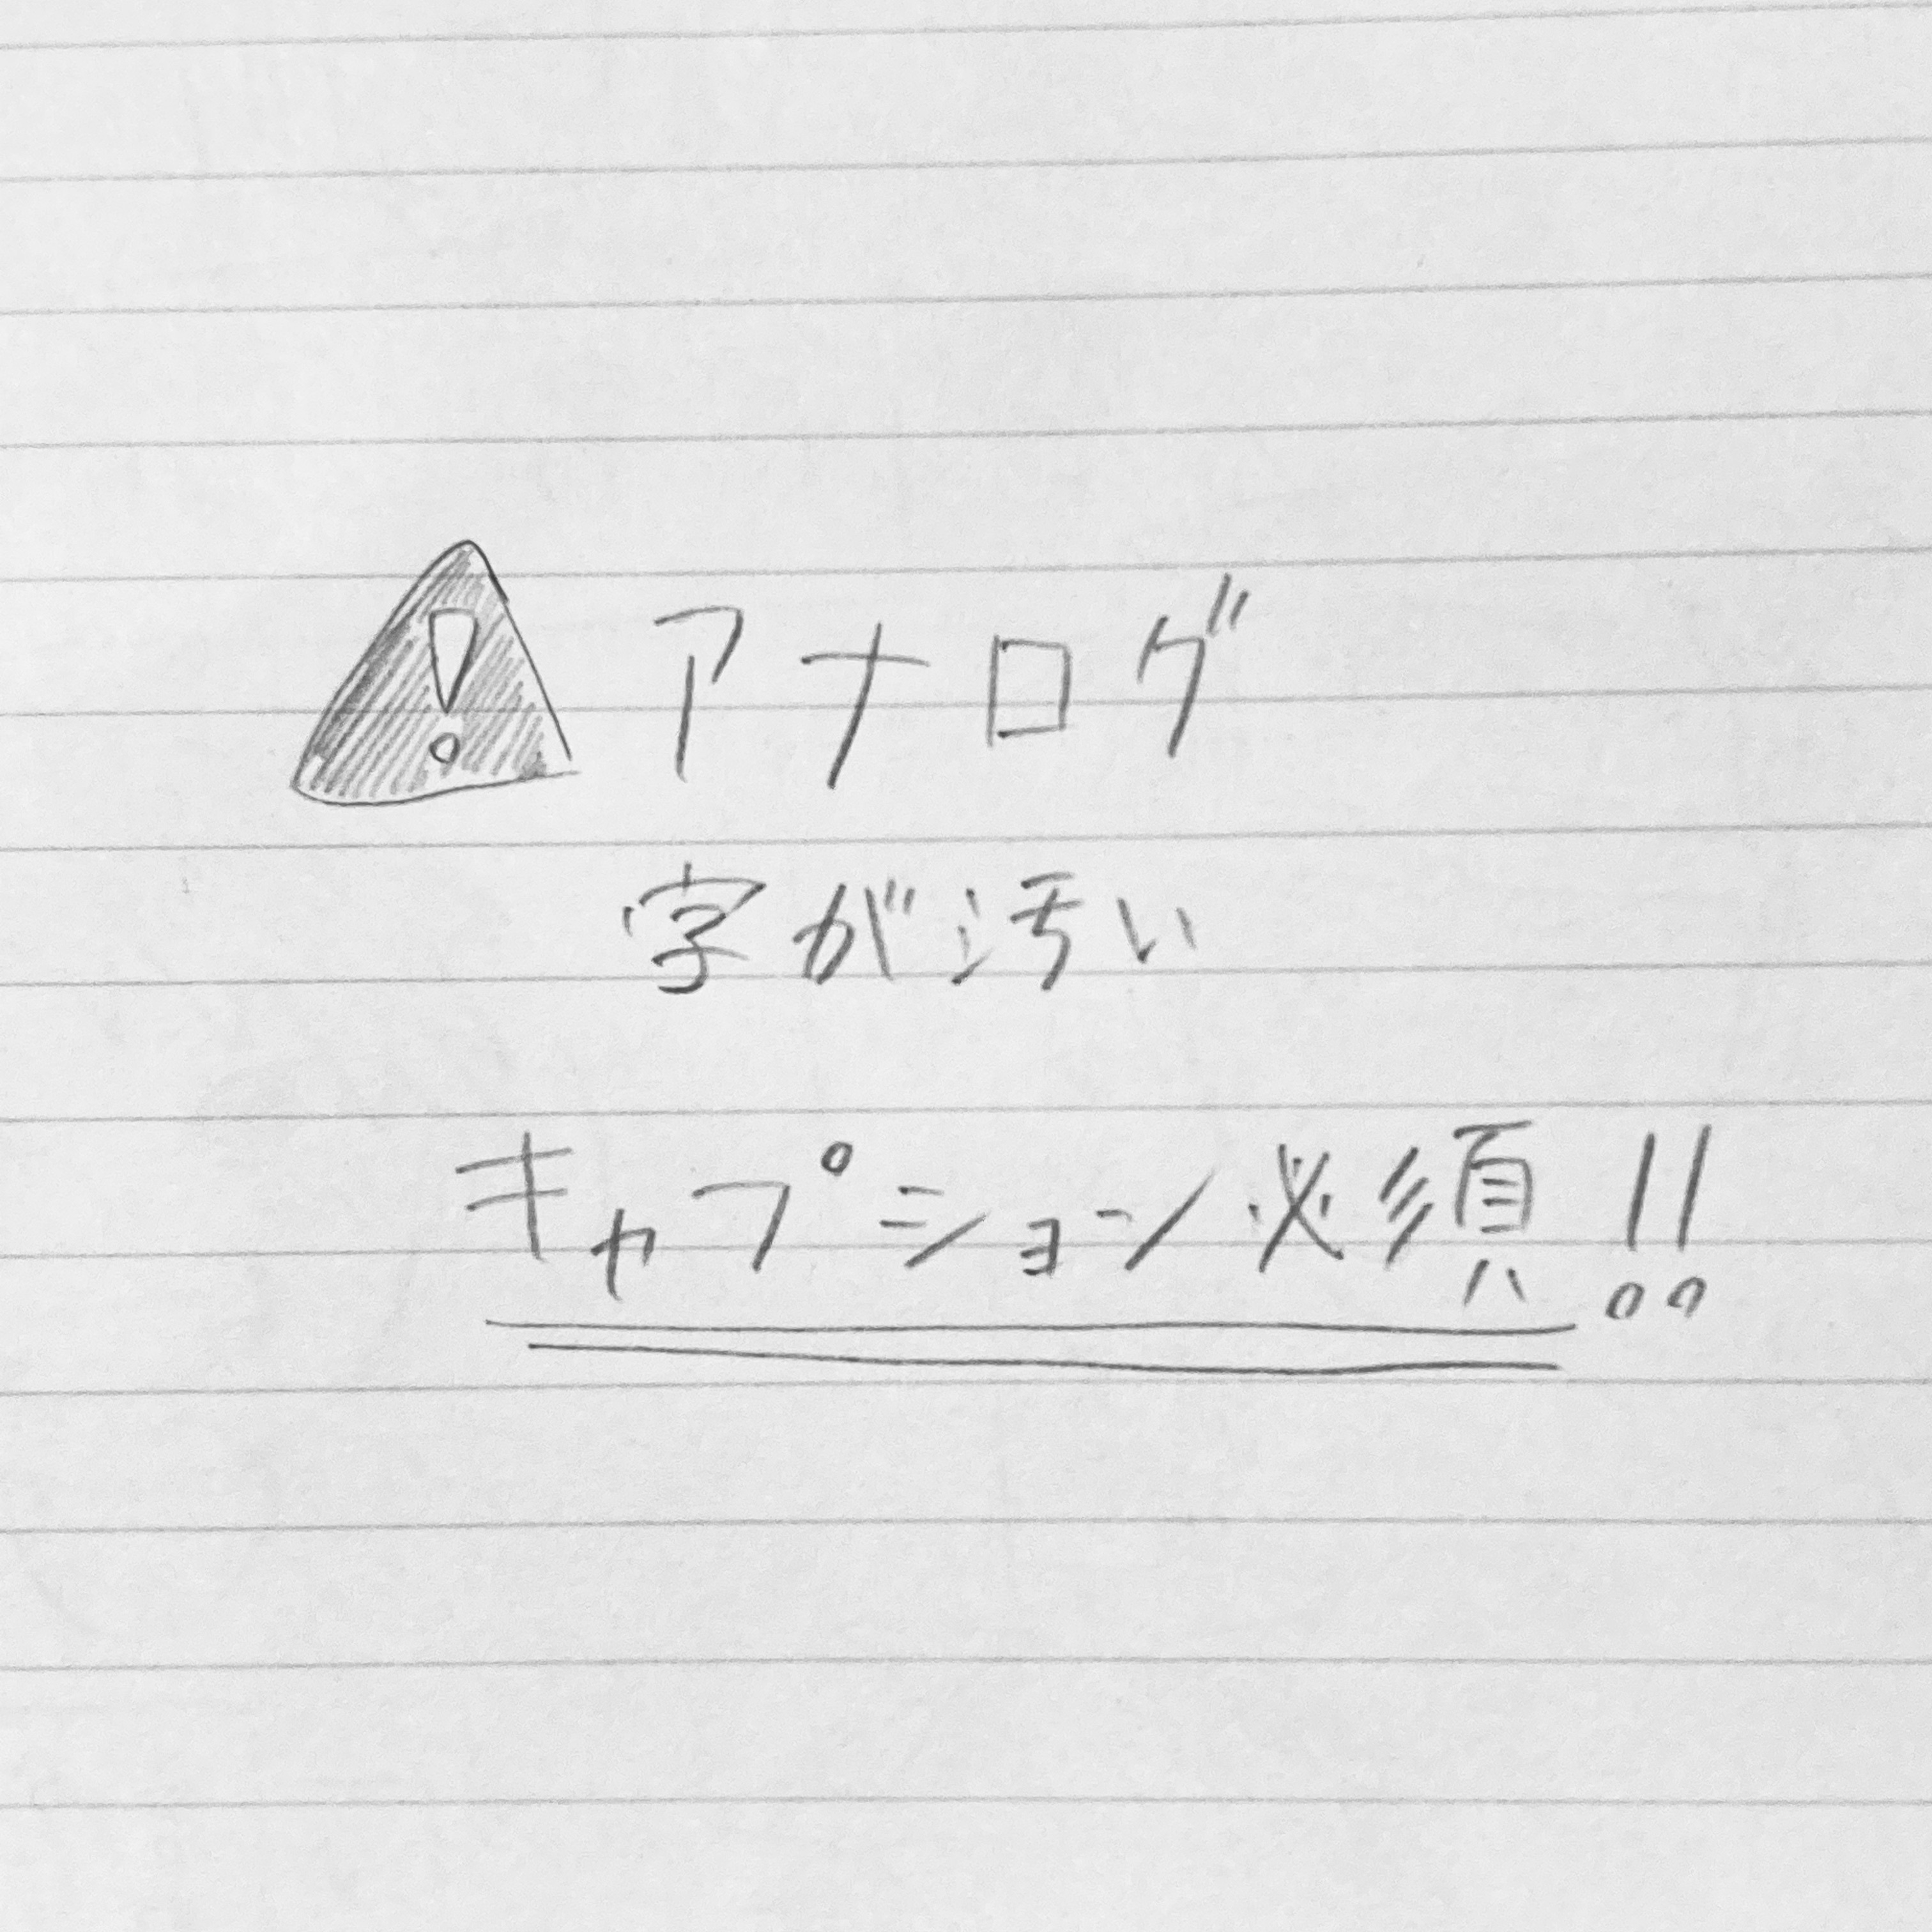 ⚠アナログ
字が汚い
キャプション必須!!